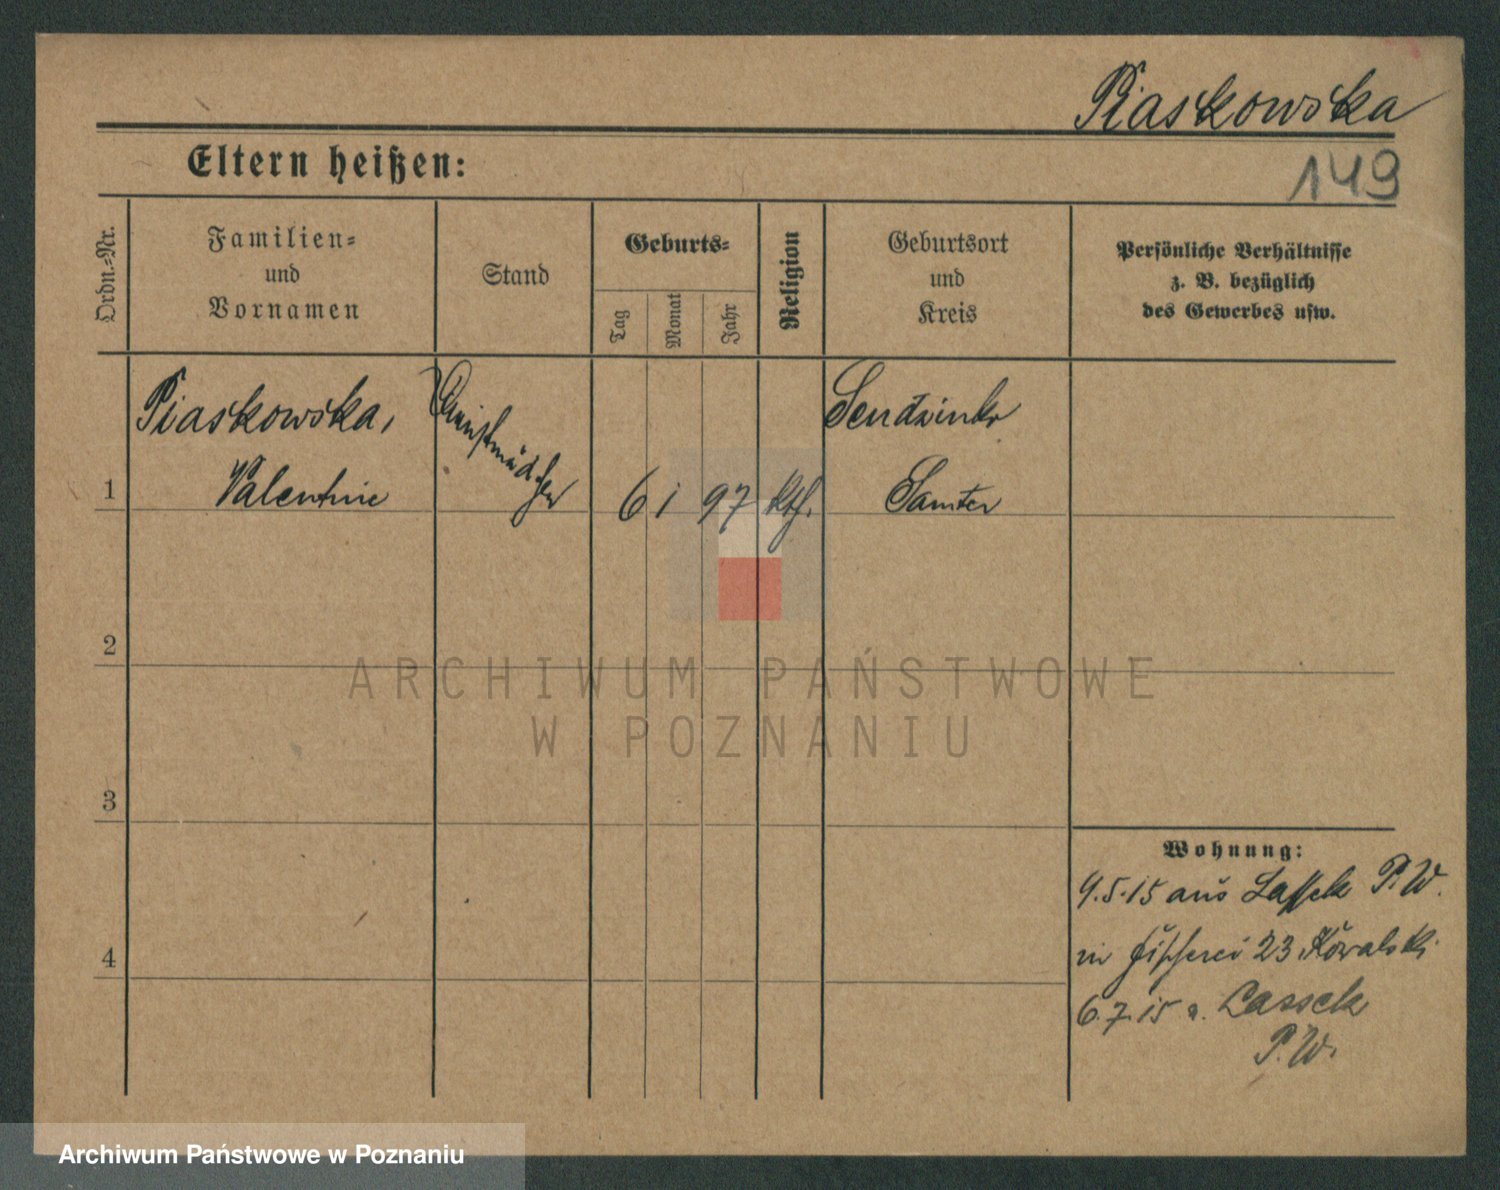 Piaskowska
149
Eltern heißen:
Ordn.-Nr.
Familien-
und
Vornamen
Stand
Geburts-
Tag
Monat
Jahr
Religion
Geburtsort
und
Kreis
Persönliche Verhältnisse
z. B. bezüglich
des Gewerbes usw.
1
Piaskowska,
Valentine
Dienstmädchen
6 1 97
kth.
Sendzinko
Samter
2
3
4
Wohnung:
9.5.15 aus Lassek P.W.
in Fischerei 23 Kowalski
6.7.15 n. Lassek
P.W.
ARCHIWUM PAŃSTWOWE
W POZNANIU
Archiwum Państwowe w Poznaniu